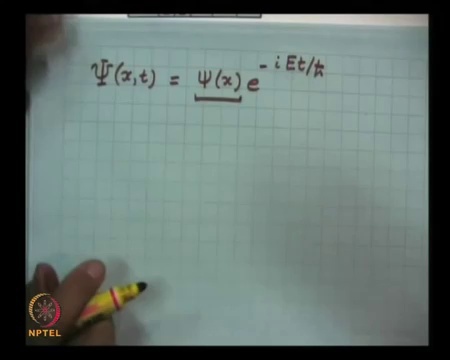 Ψ(x,t) = ψ(x) e^{-iEt/ħ}
NPTEL